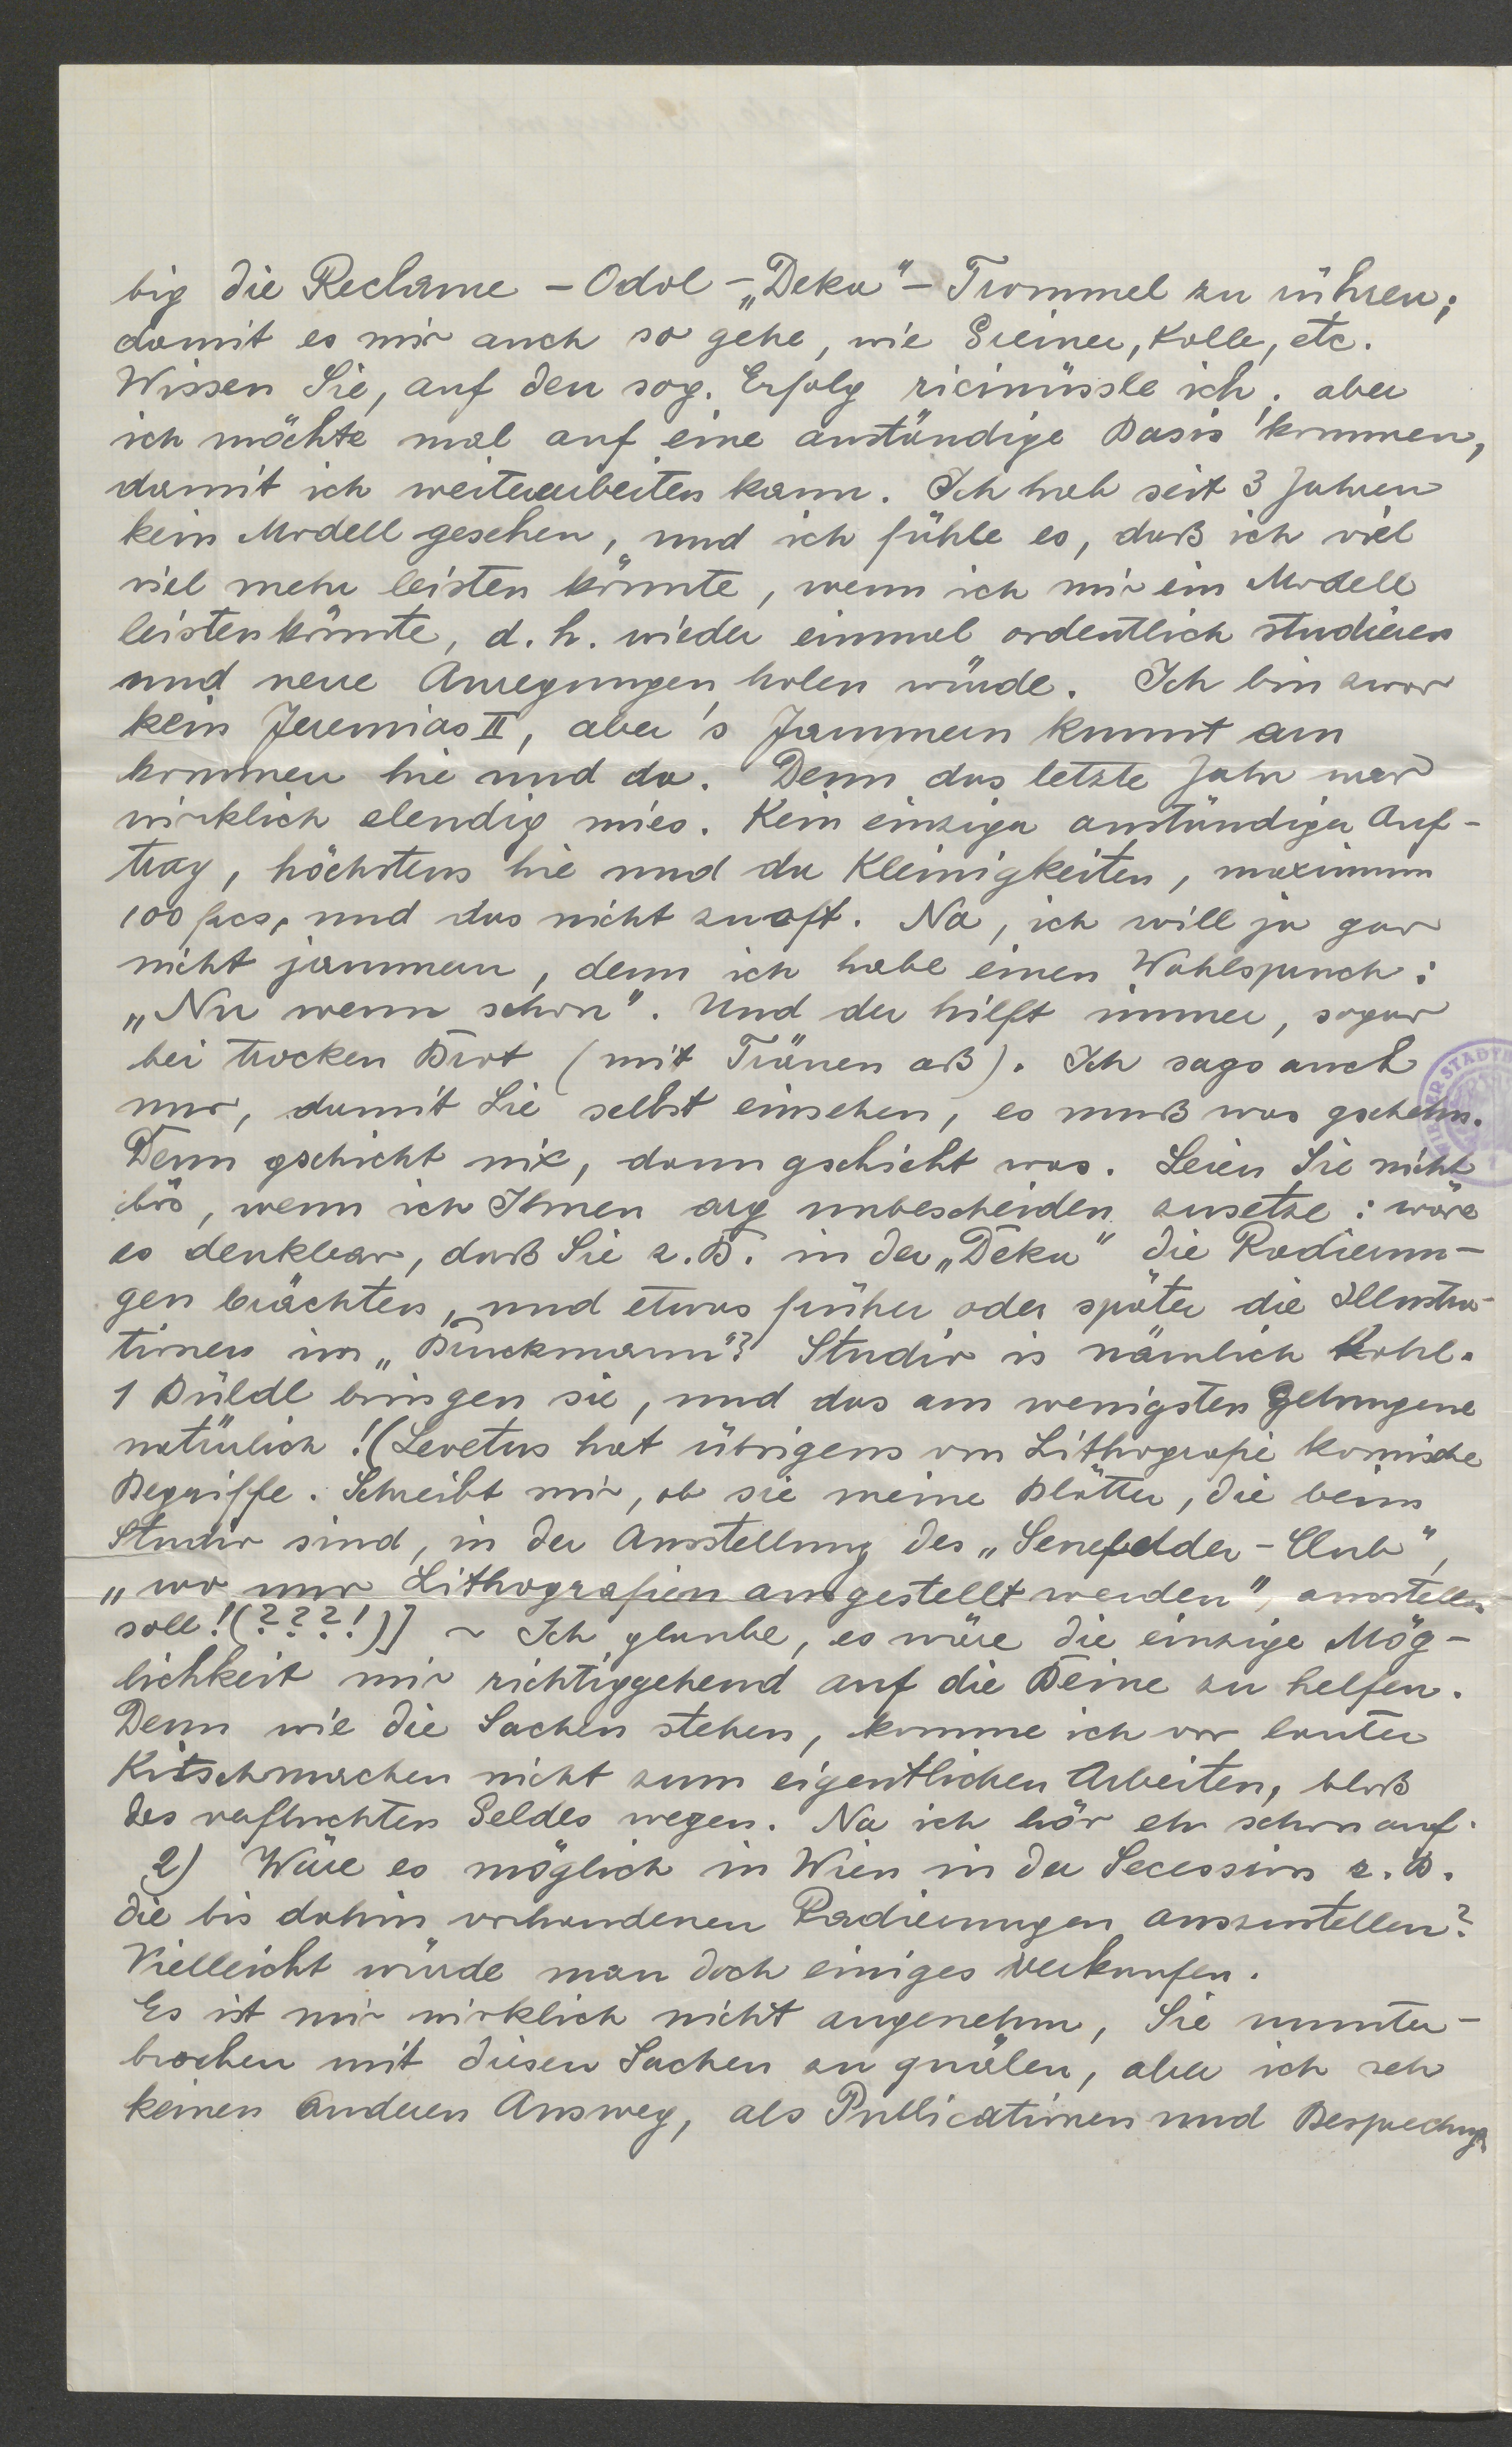 big die Reclame – Odol – „Deku“ – Trommel zu rühren;
damit es mir auch so gehe, wie Greiner, Kolle, etc.
Wissen Sie, auf den sog. Erfolg ricinüssle ich; aber
ich möchte mal auf eine anständige Basis kommen,
damit ich weiterarbeiten kann. Ich hab seit 3 Jahren
kein Modell gesehen, und ich fühle es, daß ich viel
viel mehr leisten könnte, wenn ich mir ein Modell
leisten könnte, d. h. wieder einmal ordentlich studieren
und neue Anregungen holen würde. Ich bin zwar
kein Jeremias II, aber 's Jammern kunnt am
kommen hie und da. Denn das letzte Jahr war
wirklich elendig mies. Kein einziger anständiger Auf-
trag, höchstens hie und da Kleinigkeiten, maximum
100 frcs, und das nicht zu oft. Na, ich will ja gar
nicht jammern, denn ich habe einen Wahlspruch:
„Nu wenn schon“. Und der hilft immer, sogar
bei trocken Brot (mit Tränen aß). Ich sags auch
nur, damit Sie selbst einsehen, es muß was gschehn.
Denn gschicht nix, dann gschicht was. Seien Sie nicht
bös, wenn ich Ihnen arg unbescheiden zusetze: wäre
es denkbar, daß Sie z. B. in der „Deku“ die Radierun-
gen brächten, und etwas früher oder später die Illustra-
tionen im „Bruckmann“? Studio is nämlich Kohl.
1 Büldl bringen sie, und das am wenigsten gelungene
natürlich! (Levetus hat übrigens von Lithografie komische
Begriffe. Schreibt mir, ob sie meine Blätter, die beim
Studio sind, in der Ausstellung des „Senefelder-Club“,
„wo nur Lithografien ausgestellt werden“, ausstellen
soll! (???!)] ~ Ich glaube, es wäre die einzige Mög-
lichkeit mir richtiggehend auf die Beine zu helfen.
Denn wie die Sachen stehen, komme ich vor lauter
Kitschmachen nicht zum eigentlichen Arbeiten, bloß
des verfluchten Geldes wegen. Na ich hör eh schon auf.
2) Wäre es möglich in Wien in der Secession z. B.
die bis dahin vorhandenen Radierungen auszustellen?
Vielleicht würde man doch einiges verkaufen.
Es ist mir wirklich nicht angenehm, Sie ununter-
brochen mit diesen Sachen zu quälen, aber ich seh
keinen anderen Ausweg, als Publicationen und Besprechung